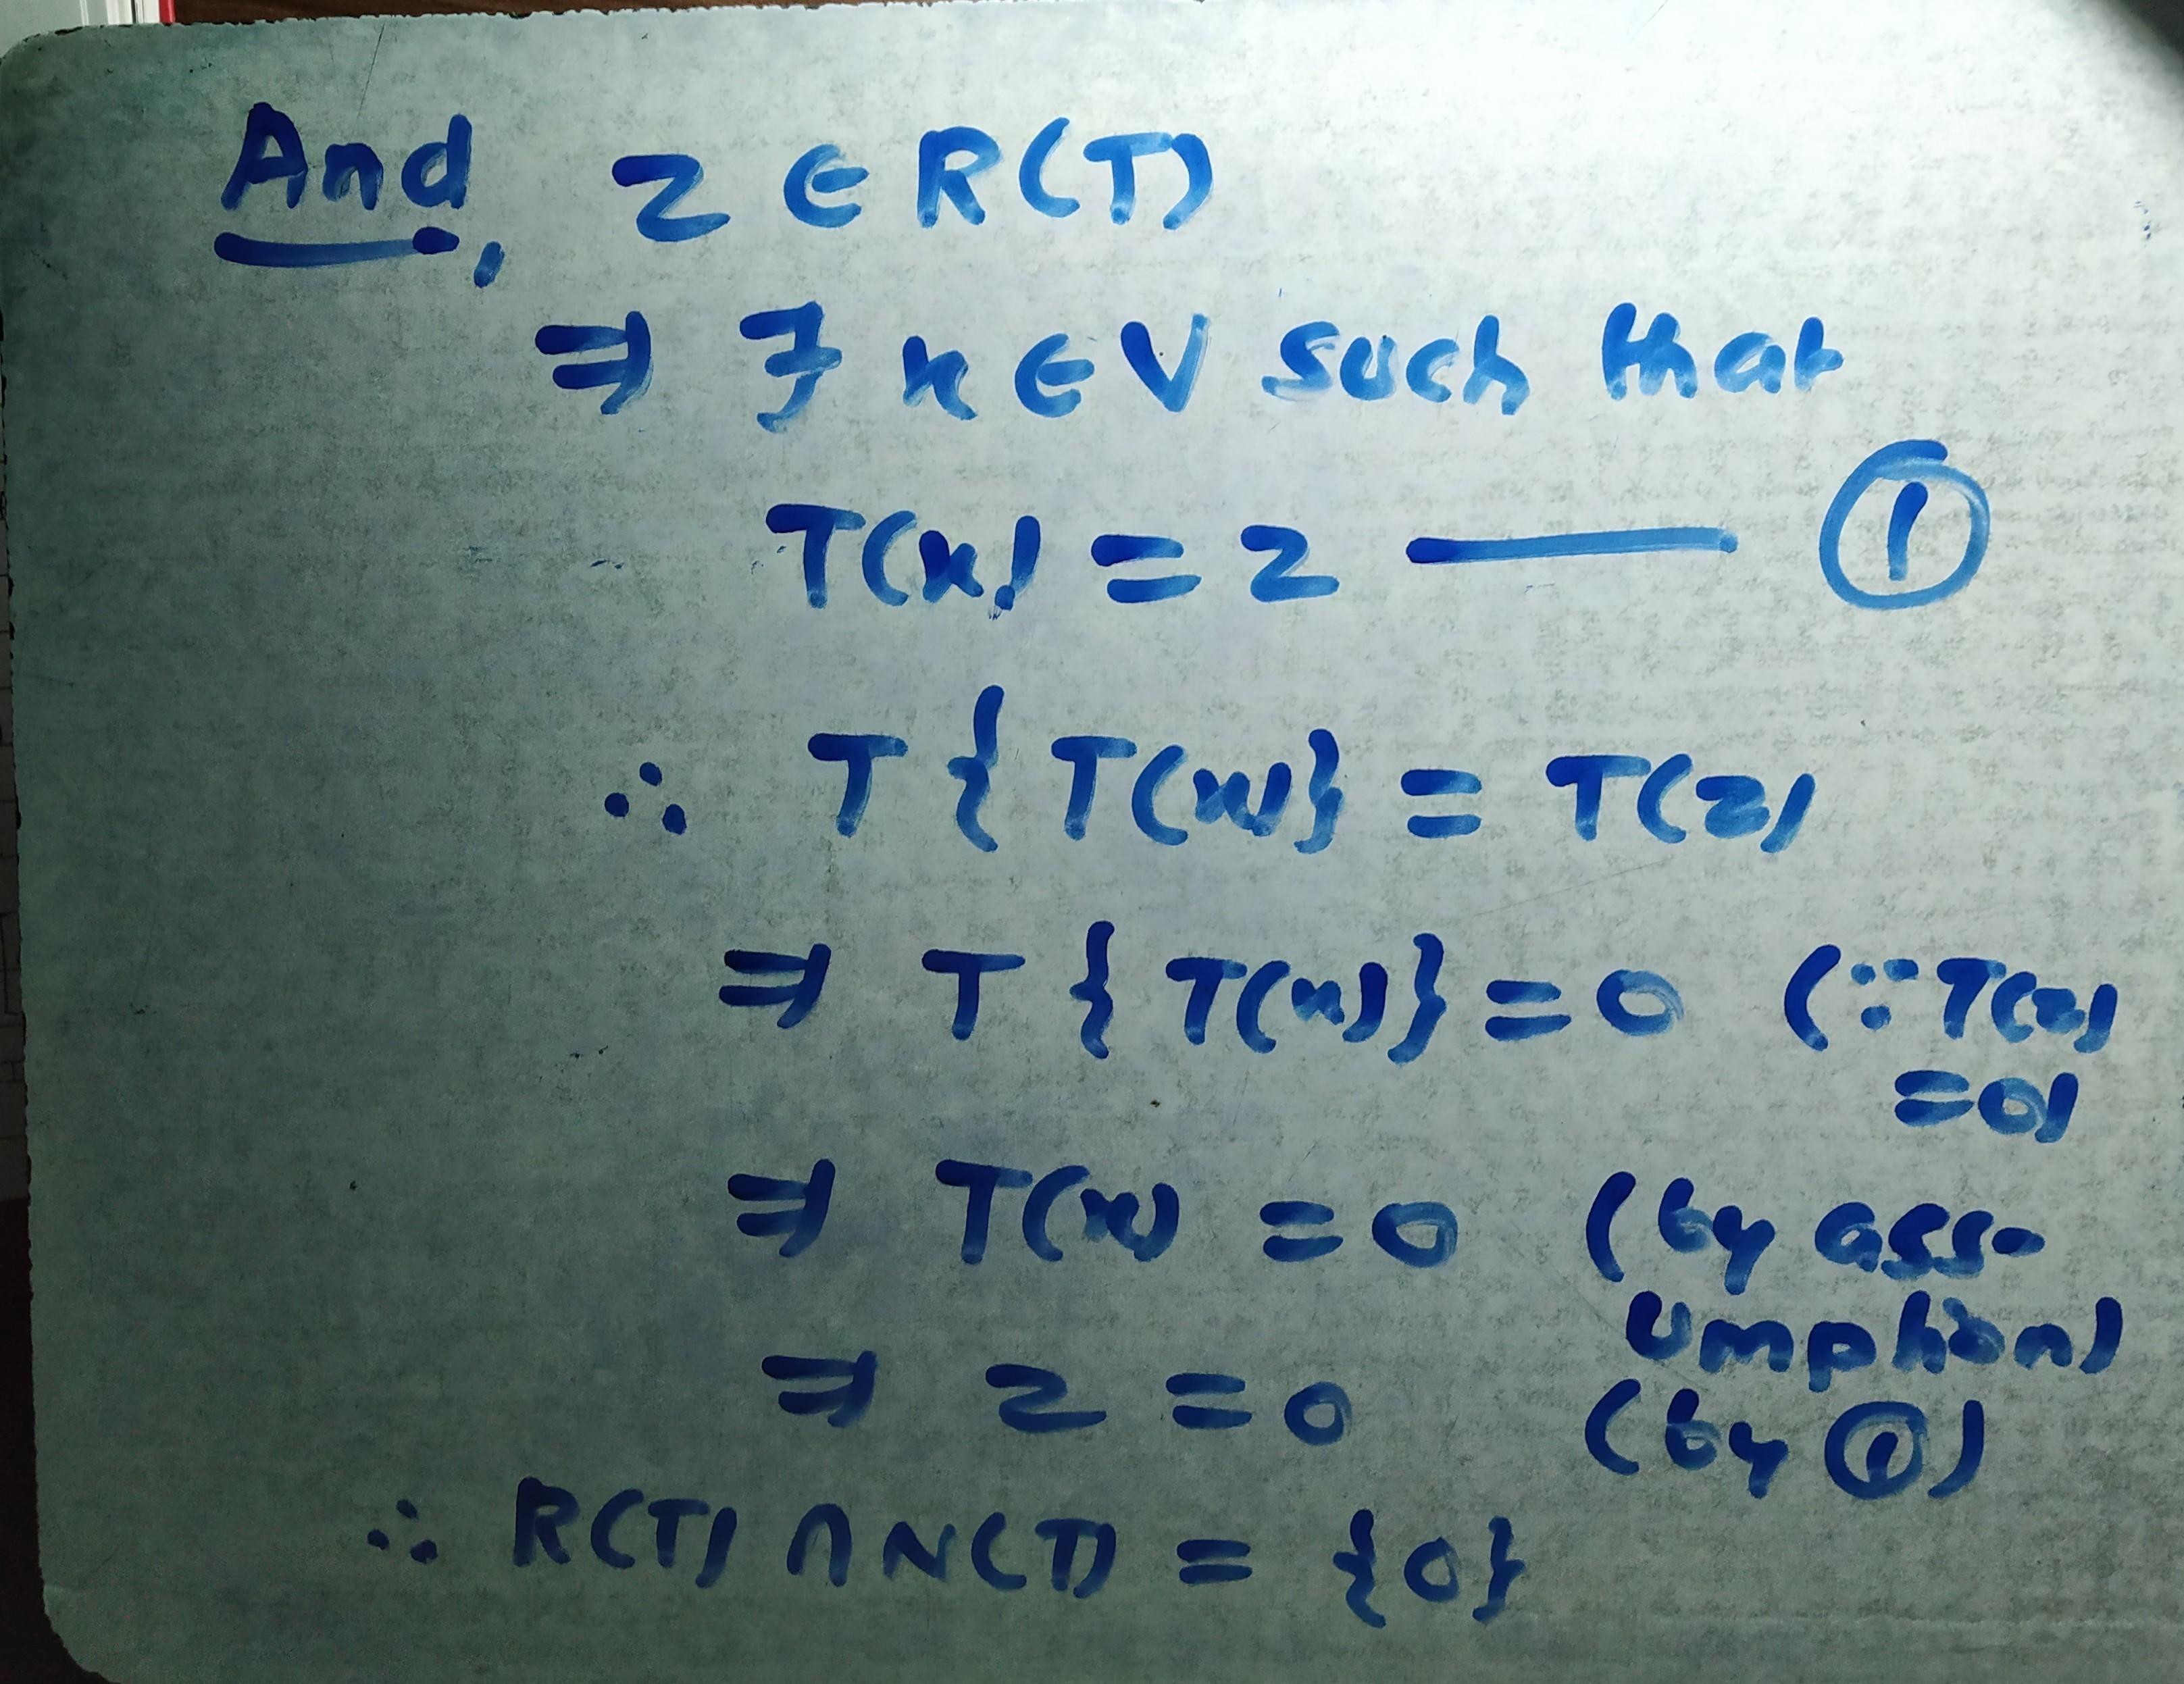 And, z ∈ R(T)
⇒ ∃ x ∈ V such that
T(x) = z —— ①
∴ T { T(x) } = T(z)
⇒ T { T(x) } = 0 (∵ T(z)
= 0)
⇒ T(x) = 0 (by ass-
umption)
⇒ z = 0 (by ①)
∴ R(T) ∩ N(T) = {0}